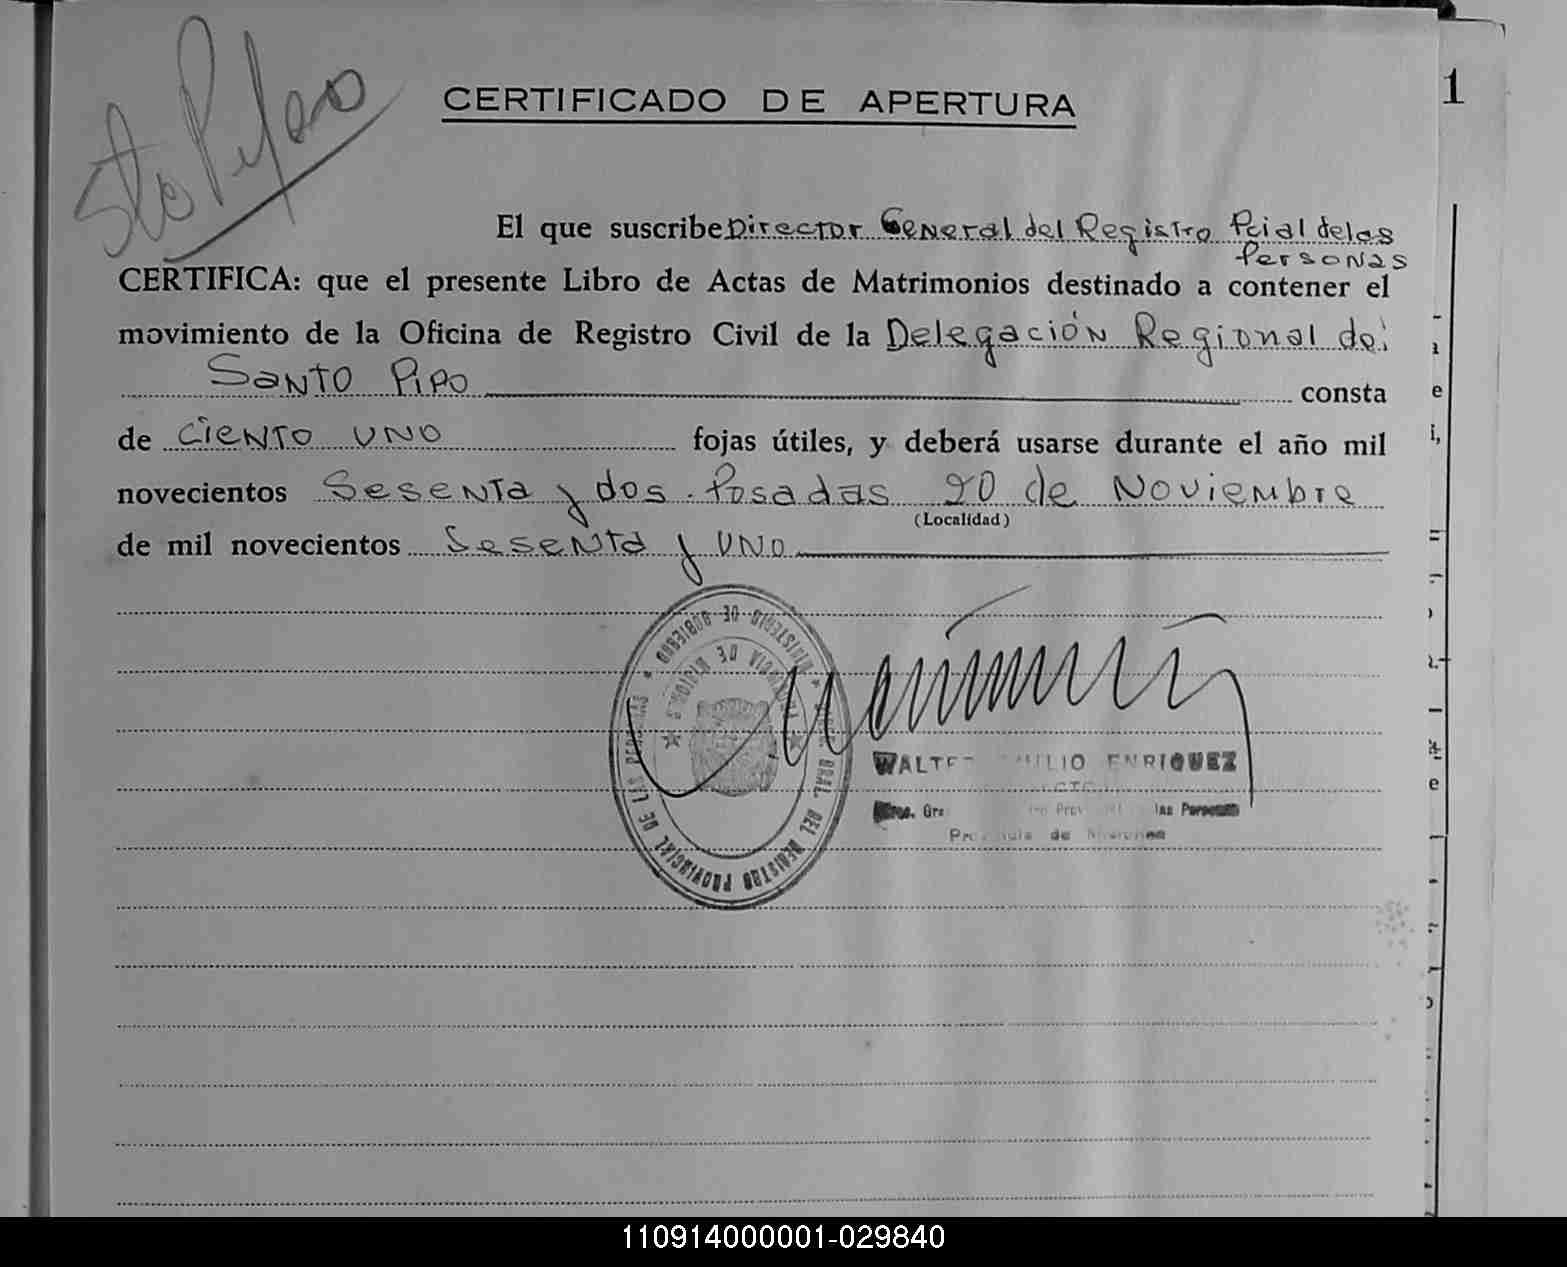 Sto Pipo
CERTIFICADO DE APERTURA
1
El que suscribe Director General del Registro Pcial de las
Personas
CERTIFICA: que el presente Libro de Actas de Matrimonios destinado a contener el
movimiento de la Oficina de Registro Civil de la Delegación Regional de:
Santo Pipo consta
de Ciento uno fojas útiles, y deberá usarse durante el año mil
novecientos Sesenta y dos. Posadas 20 de Noviembre
(Localidad)
de mil novecientos Sesenta y uno
MINISTERIO DE GOBIERNO
PROVINCIA DE MISIONES
GRAL. DEL REGISTRO PROVINCIAL DE LAS PERSONAS
WALTER EMILIO ENRIQUEZ
las Personas
Provincia de Misiones
110914000001-029840